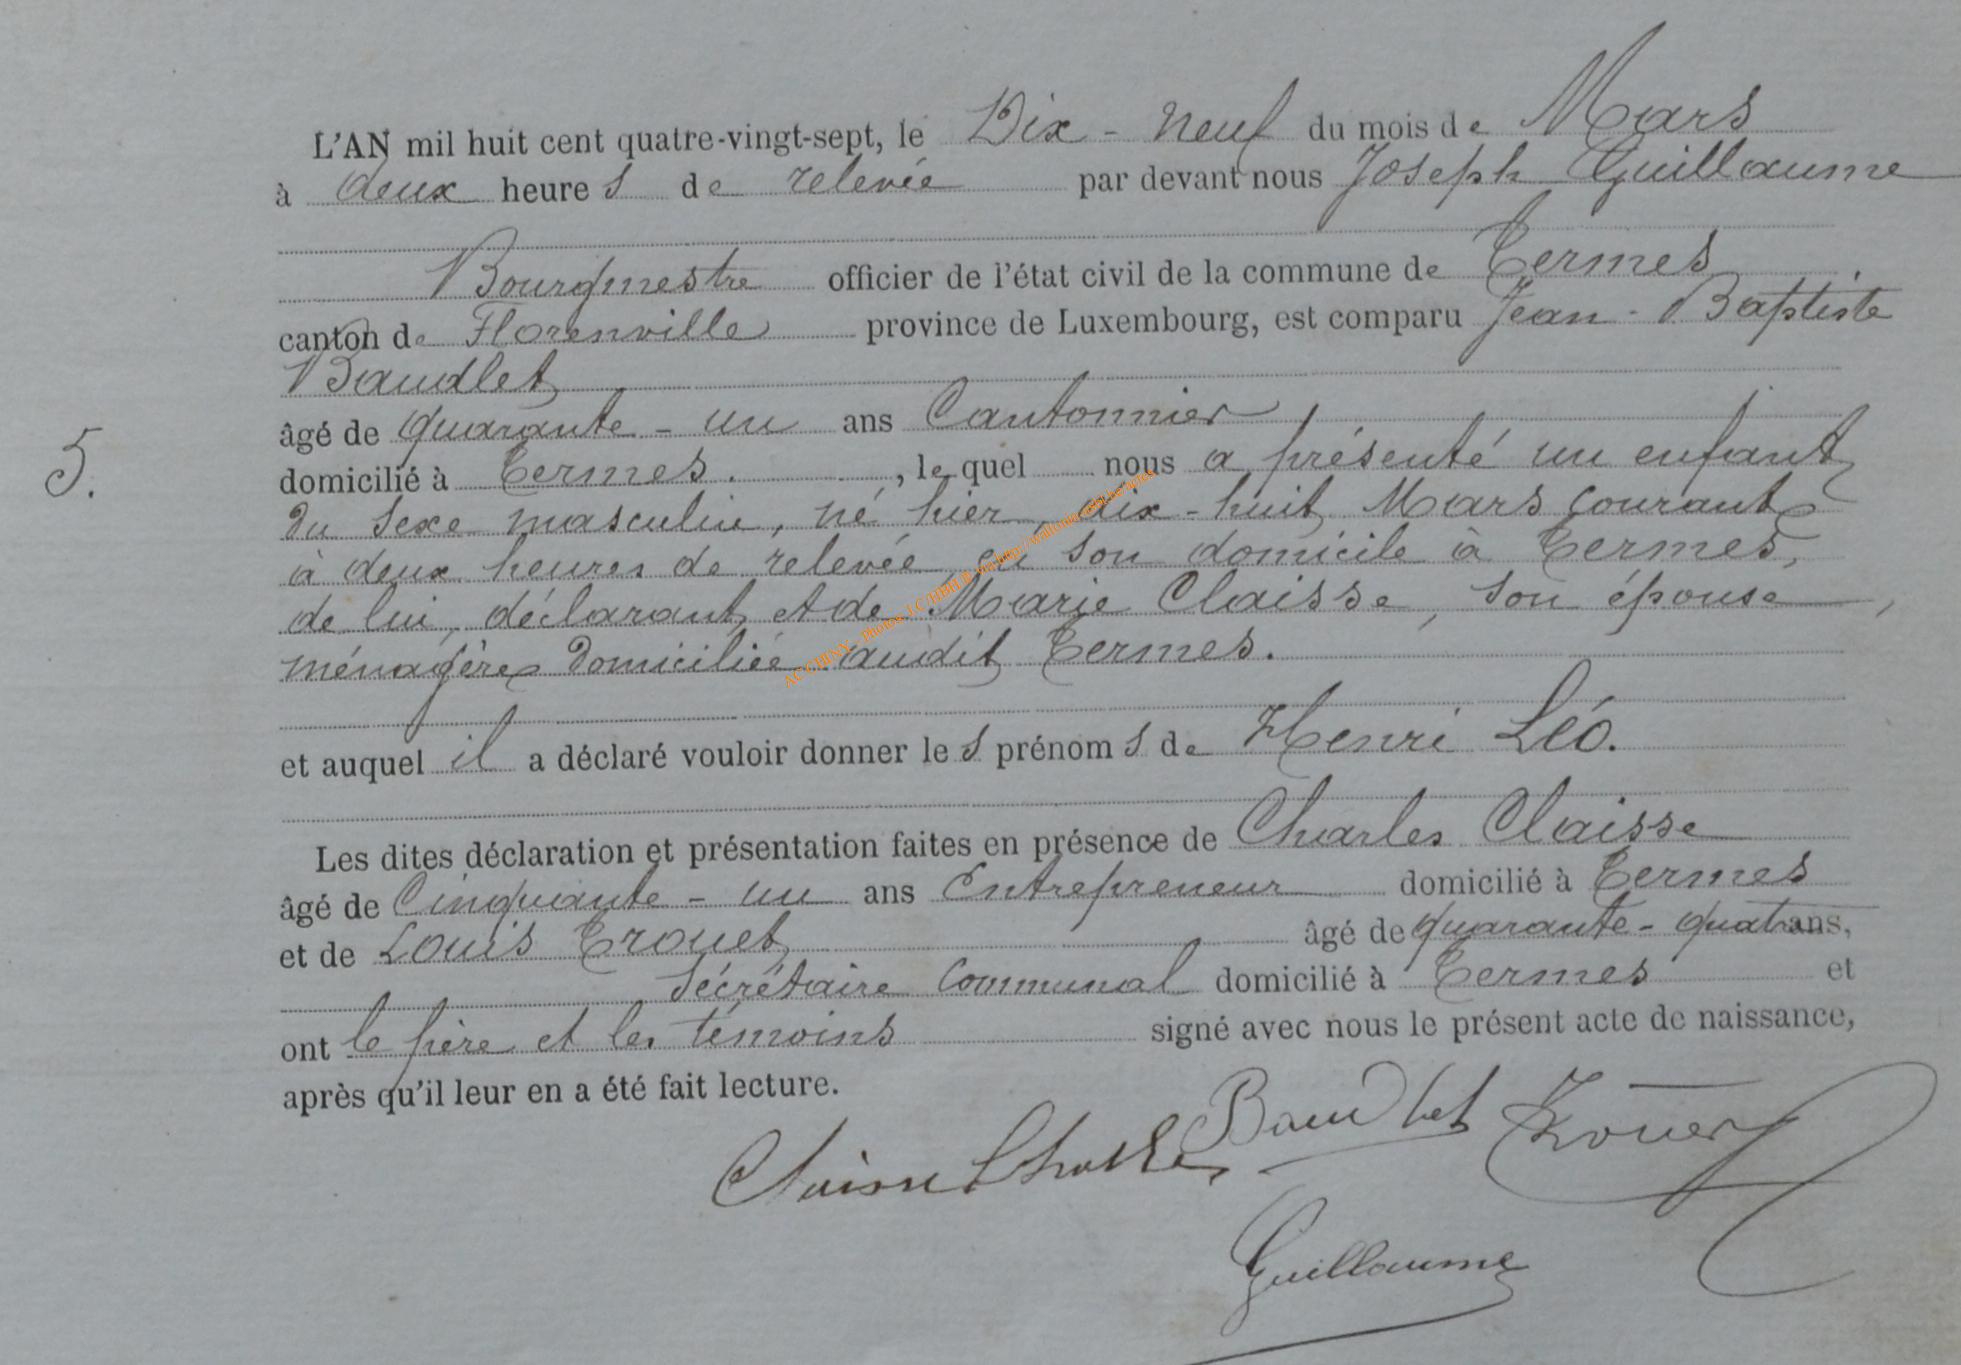 L'AN mil huit cent quatre-vingt-sept, le Dix-neuf du mois de Mars
à deux heures de relevée par devant nous Joseph Guillaume
Bourgmestre officier de l'état civil de la commune de Termes
canton de Florenville province de Luxembourg, est comparu Jean-Baptiste
Baudlet
âgé de quarante-un ans Cantonnier
5. domicilié à Termes. , lequel nous a présenté un enfant
du sexe masculin, né hier, dix-huit Mars courant
à deux heures de relevée, en son domicile à Termes,
de lui, déclarant et de Marie Claisse, son épouse,
ménagère domiciliée audit Termes.
et auquel il a déclaré vouloir donner les prénoms de Henri Léo.
Les dites déclaration et présentation faites en présence de Charles Claisse
âgé de Cinquante-un ans Entrepreneur domicilié à Termes
et de Louis Trouet âgé de quarante-quatre ans,
Sécrétaire Communal domicilié à Termes et
ont le père et les témoins signé avec nous le présent acte de naissance,
après qu'il leur en a été fait lecture.
Claisse Charles Baudlet Trouet
Guillaume
AC CHINY - Photos